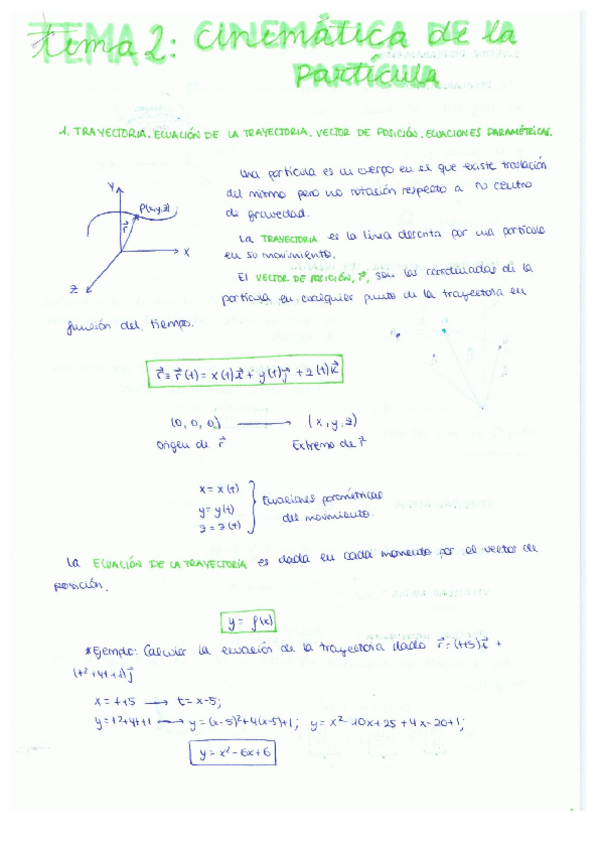 Tema 2: Cinemática de la
partícula
1. TRAYECTORIA. ECUACIÓN DE LA TRAYECTORIA. VECTOR DE POSICIÓN. ECUACIONES PARAMÉTRICAS.
Una partícula es un cuerpo en el que existe traslación
del mismo pero no rotación respecto a su centro
de gravedad.
Y
P(x,y,z)
r⃗
X
Z
La TRAYECTORIA es la línea descrita por una partícula
en su movimiento.
El VECTOR DE POSICIÓN, r⃗, son las coordenadas de la
partícula en cualquier punto de la trayectoria en
función del tiempo.
r⃗ ≡ r⃗(t) = x(t)i⃗ + y(t)j⃗ + z(t)k⃗
(0,0,0) ⟶ (x,y,z)
Origen de r⃗ Extremo de r⃗
x = x(t)
y = y(t)
z = z(t)
Ecuaciones paramétricas
del movimiento.
La ECUACIÓN DE LA TRAYECTORIA es dada en cada momento por el vector de
posición.
y = f(x)
*Ejemplo: Calcular la ecuación de la trayectoria dado r⃗=(t+5)i⃗ +
(t²+4t+1)j⃗
x = t+5 ⟶ t=x-5;
y=t²+4t+1 ⟶ y=(x-5)²+4(x-5)+1; y=x²-10x+25+4x-20+1;
y=x²-6x+6